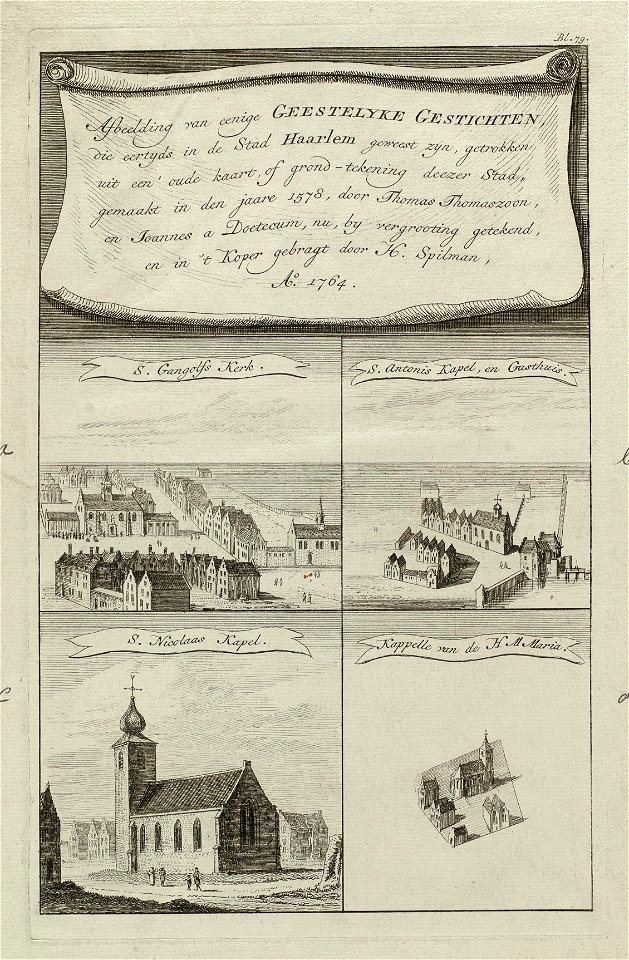 Bl. 79.
Afbeelding van eenige GEESTELYKE GESTICHTEN,
die eertyds in de Stad Haarlem geweest zyn, getrokken
uit een' oude kaart, of grond-tekening deezer Stad,
gemaakt in den jaare 1578, door Thomas Thomaszoon,
en Joannes a Doetecum, nu, by vergrooting getekend,
en in 't Koper gebragt door H. Spilman,
Aº. 1764.
S. Gangolfs Kerk.
S. Antonis Kapel, en Gasthuis.
a
b
S. Nicolaas Kapel.
Kappelle van de H M Maria.
c
d